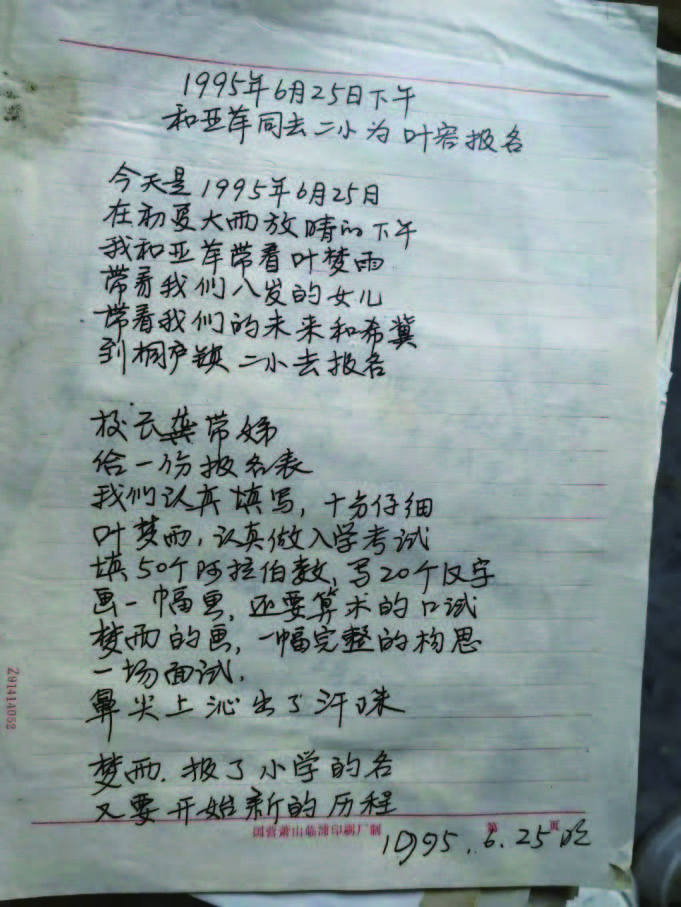 1995年6月25日下午
和亚萍同去二小为叶宕报名
今天是1995年6月25日
在初夏大雨放晴的下午
我和亚萍带着叶梦雨
带着我们八岁的女儿
带着我们的未来和希冀
到桐庐镇二小去报名
校长龚带娣
给一份报名表
我们认真填写，十分仔细
叶梦雨，认真做入学考试
填50个阿拉伯数，写20个汉字
画一幅画，还要算术的口试
梦雨的画，一幅完整的构思
一场面试，
鼻尖上沁出了汗珠
梦雨．报了小学的名
又要开始新的历程
国营萧山临浦印刷厂制
第 页
1995.6.25
Z91414052